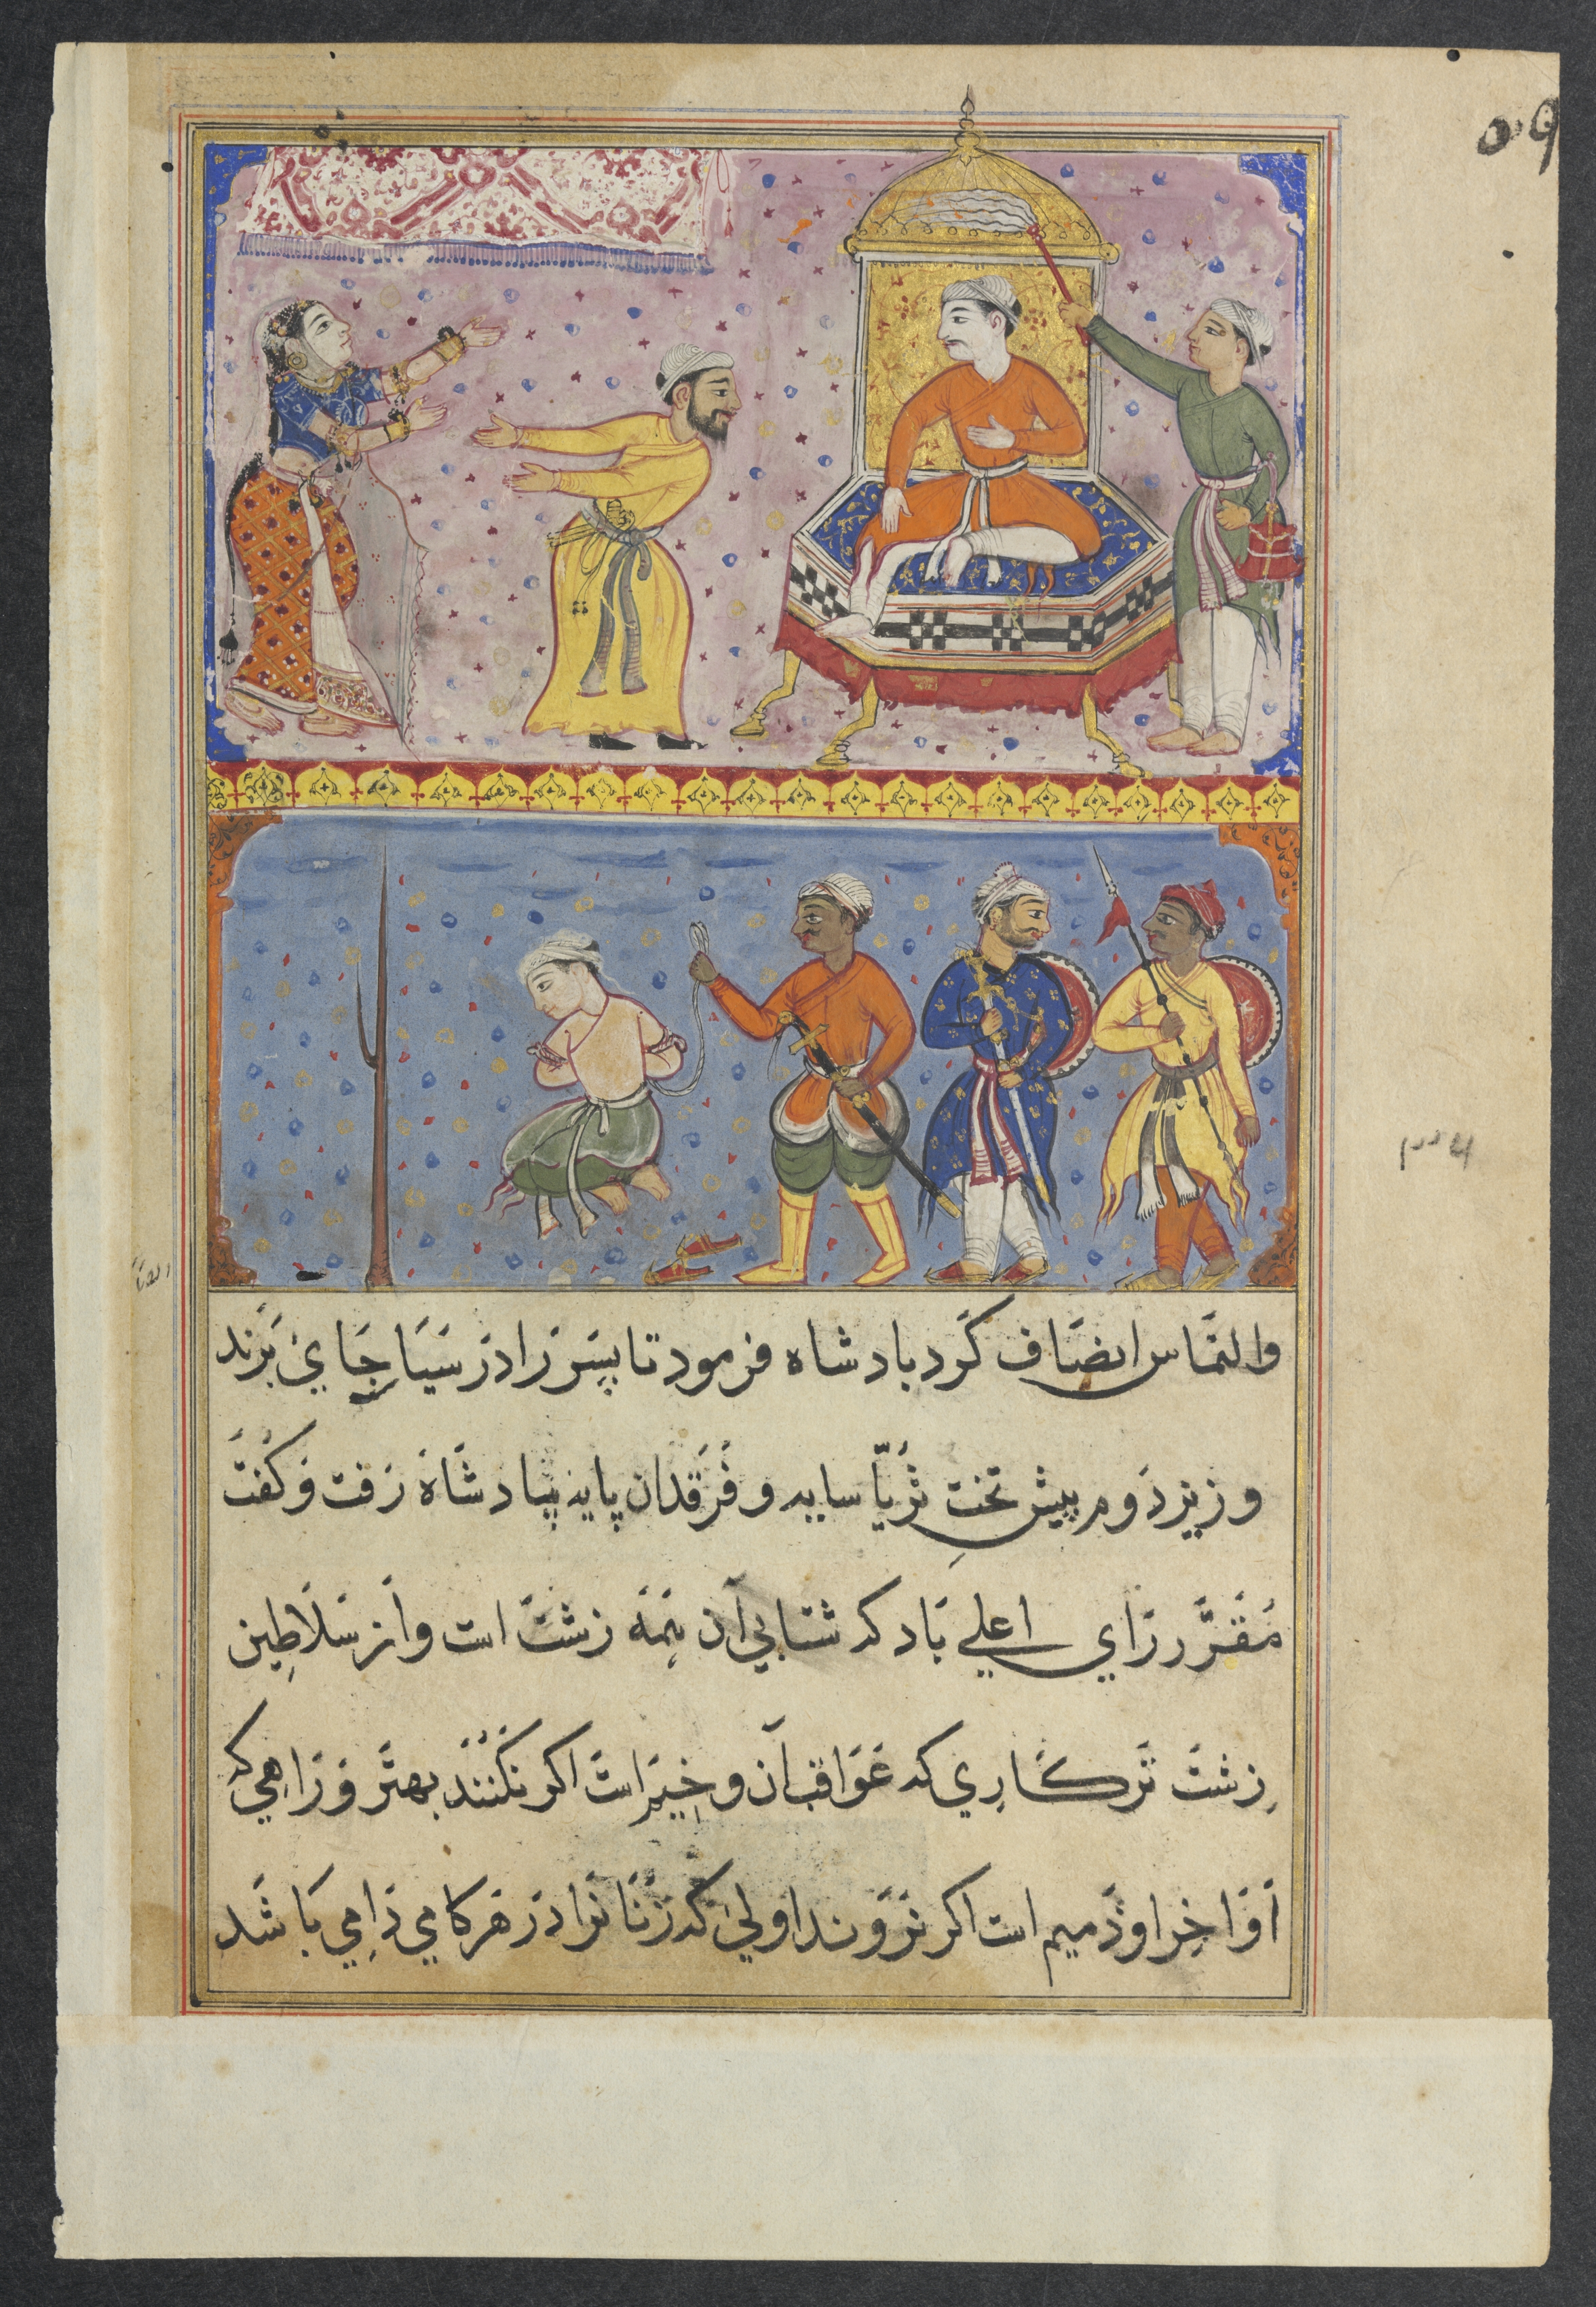 والتماس انصاف کرد بادشاه فرمود تا پسر را در سیاجای برند
وزیر دوم پیش تخت ثریا سایه و فرقدان پایه پبادشاه رفت و کفت
مقرر رای اعلی باد که شتابی آن همه زشت است و از سلاطین
زشت تر کاری که عواقب آن وخیم است اکر نکنند بهتر و راهی که
اواخر او ذمیم است اکر نروند اولی که زنانرا در هر کامی دامی باشد